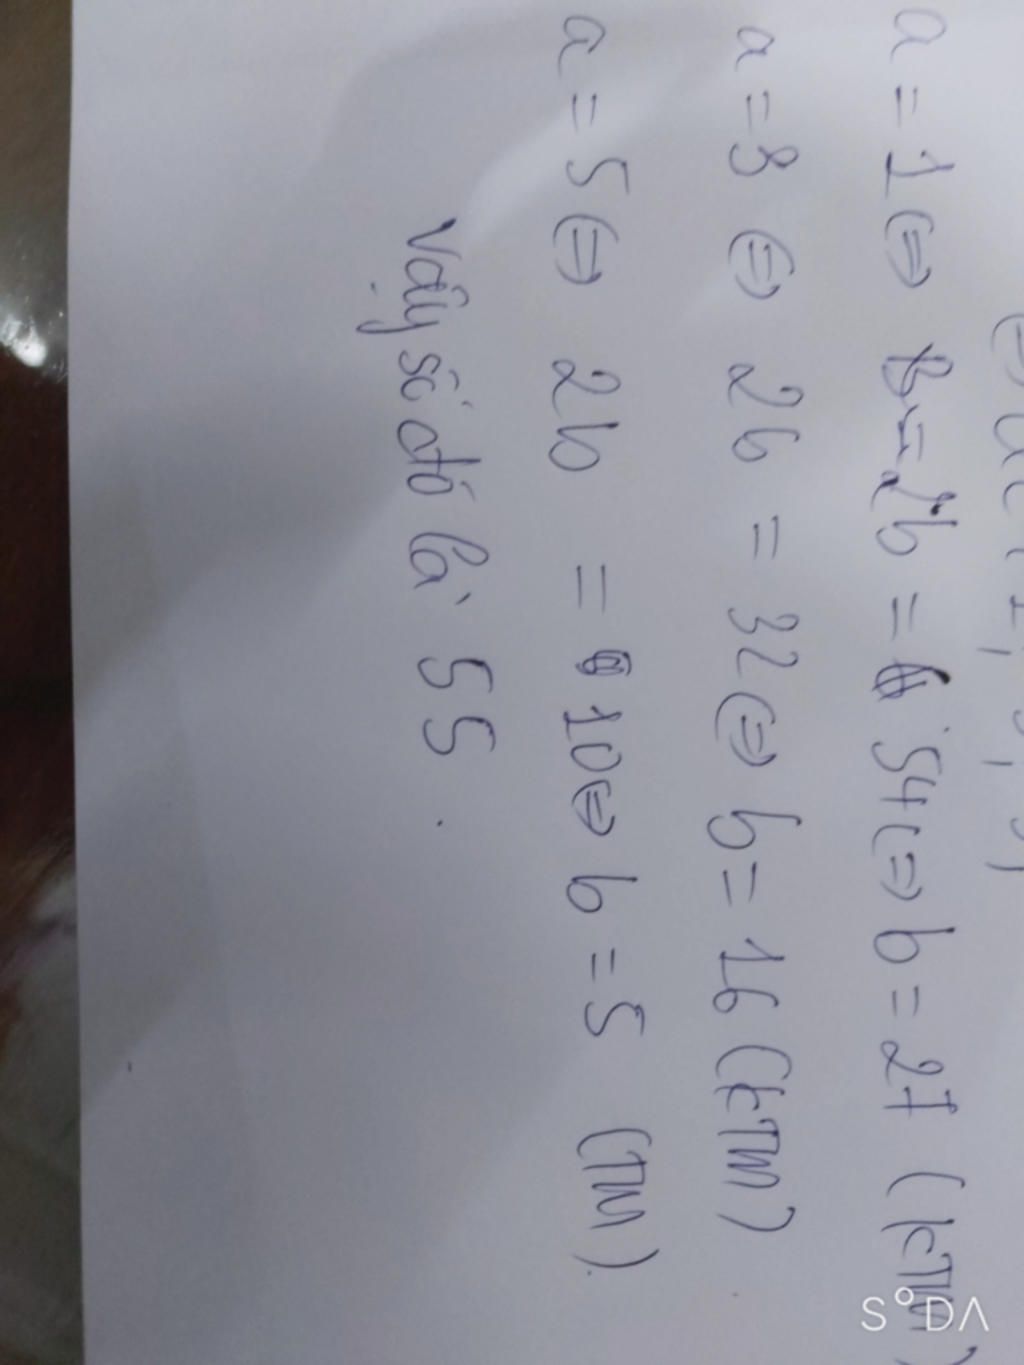 a = 1 ⇔ 2b = 54 ⇔ b = 27 (kTM)
a = 3 ⇔ 2b = 32 ⇔ b = 16 (kTM)
a = 5 ⇔ 2b = 10 ⇔ b = 5 (TM).
Vậy số đó là 55.
S°DΛ